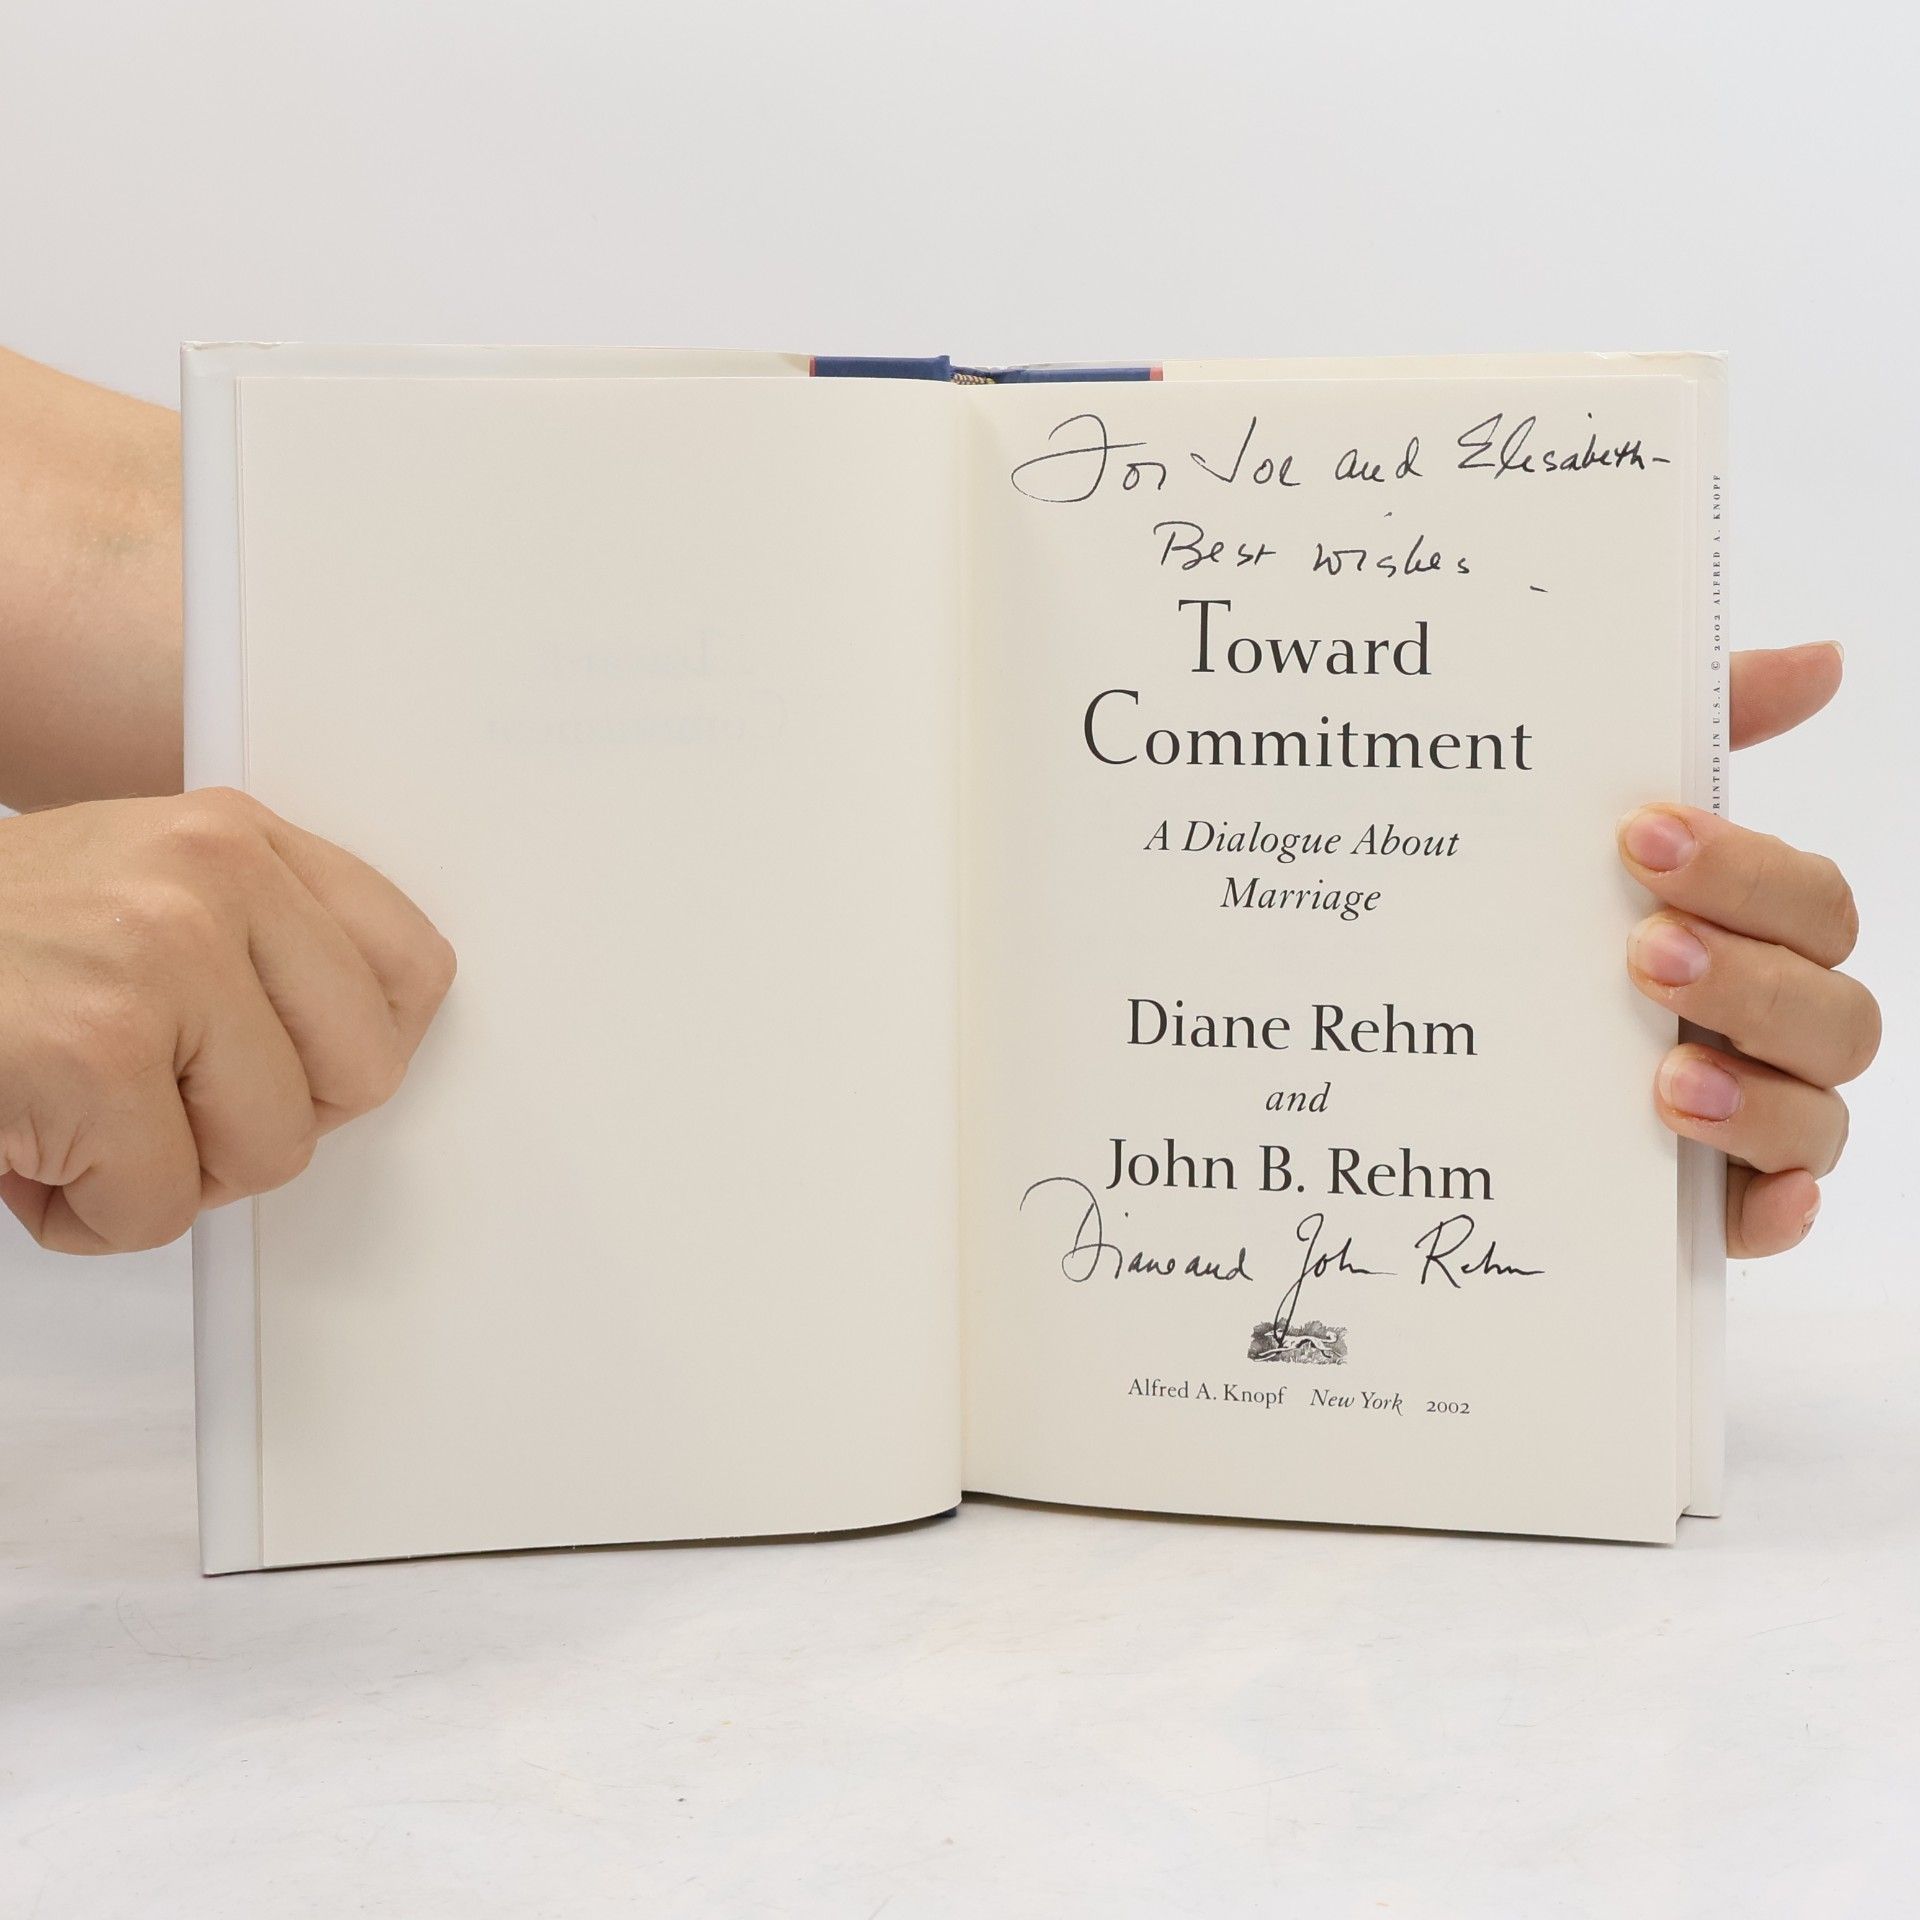 For Joe and Elisabeth-
Best wishes -
Toward
Commitment
A Dialogue About
Marriage
Diane Rehm
and
John B. Rehm
Diane and John Rehm
Alfred A. Knopf New York 2002
PRINTED IN U.S.A. © 2002 ALFRED A. KNOPF